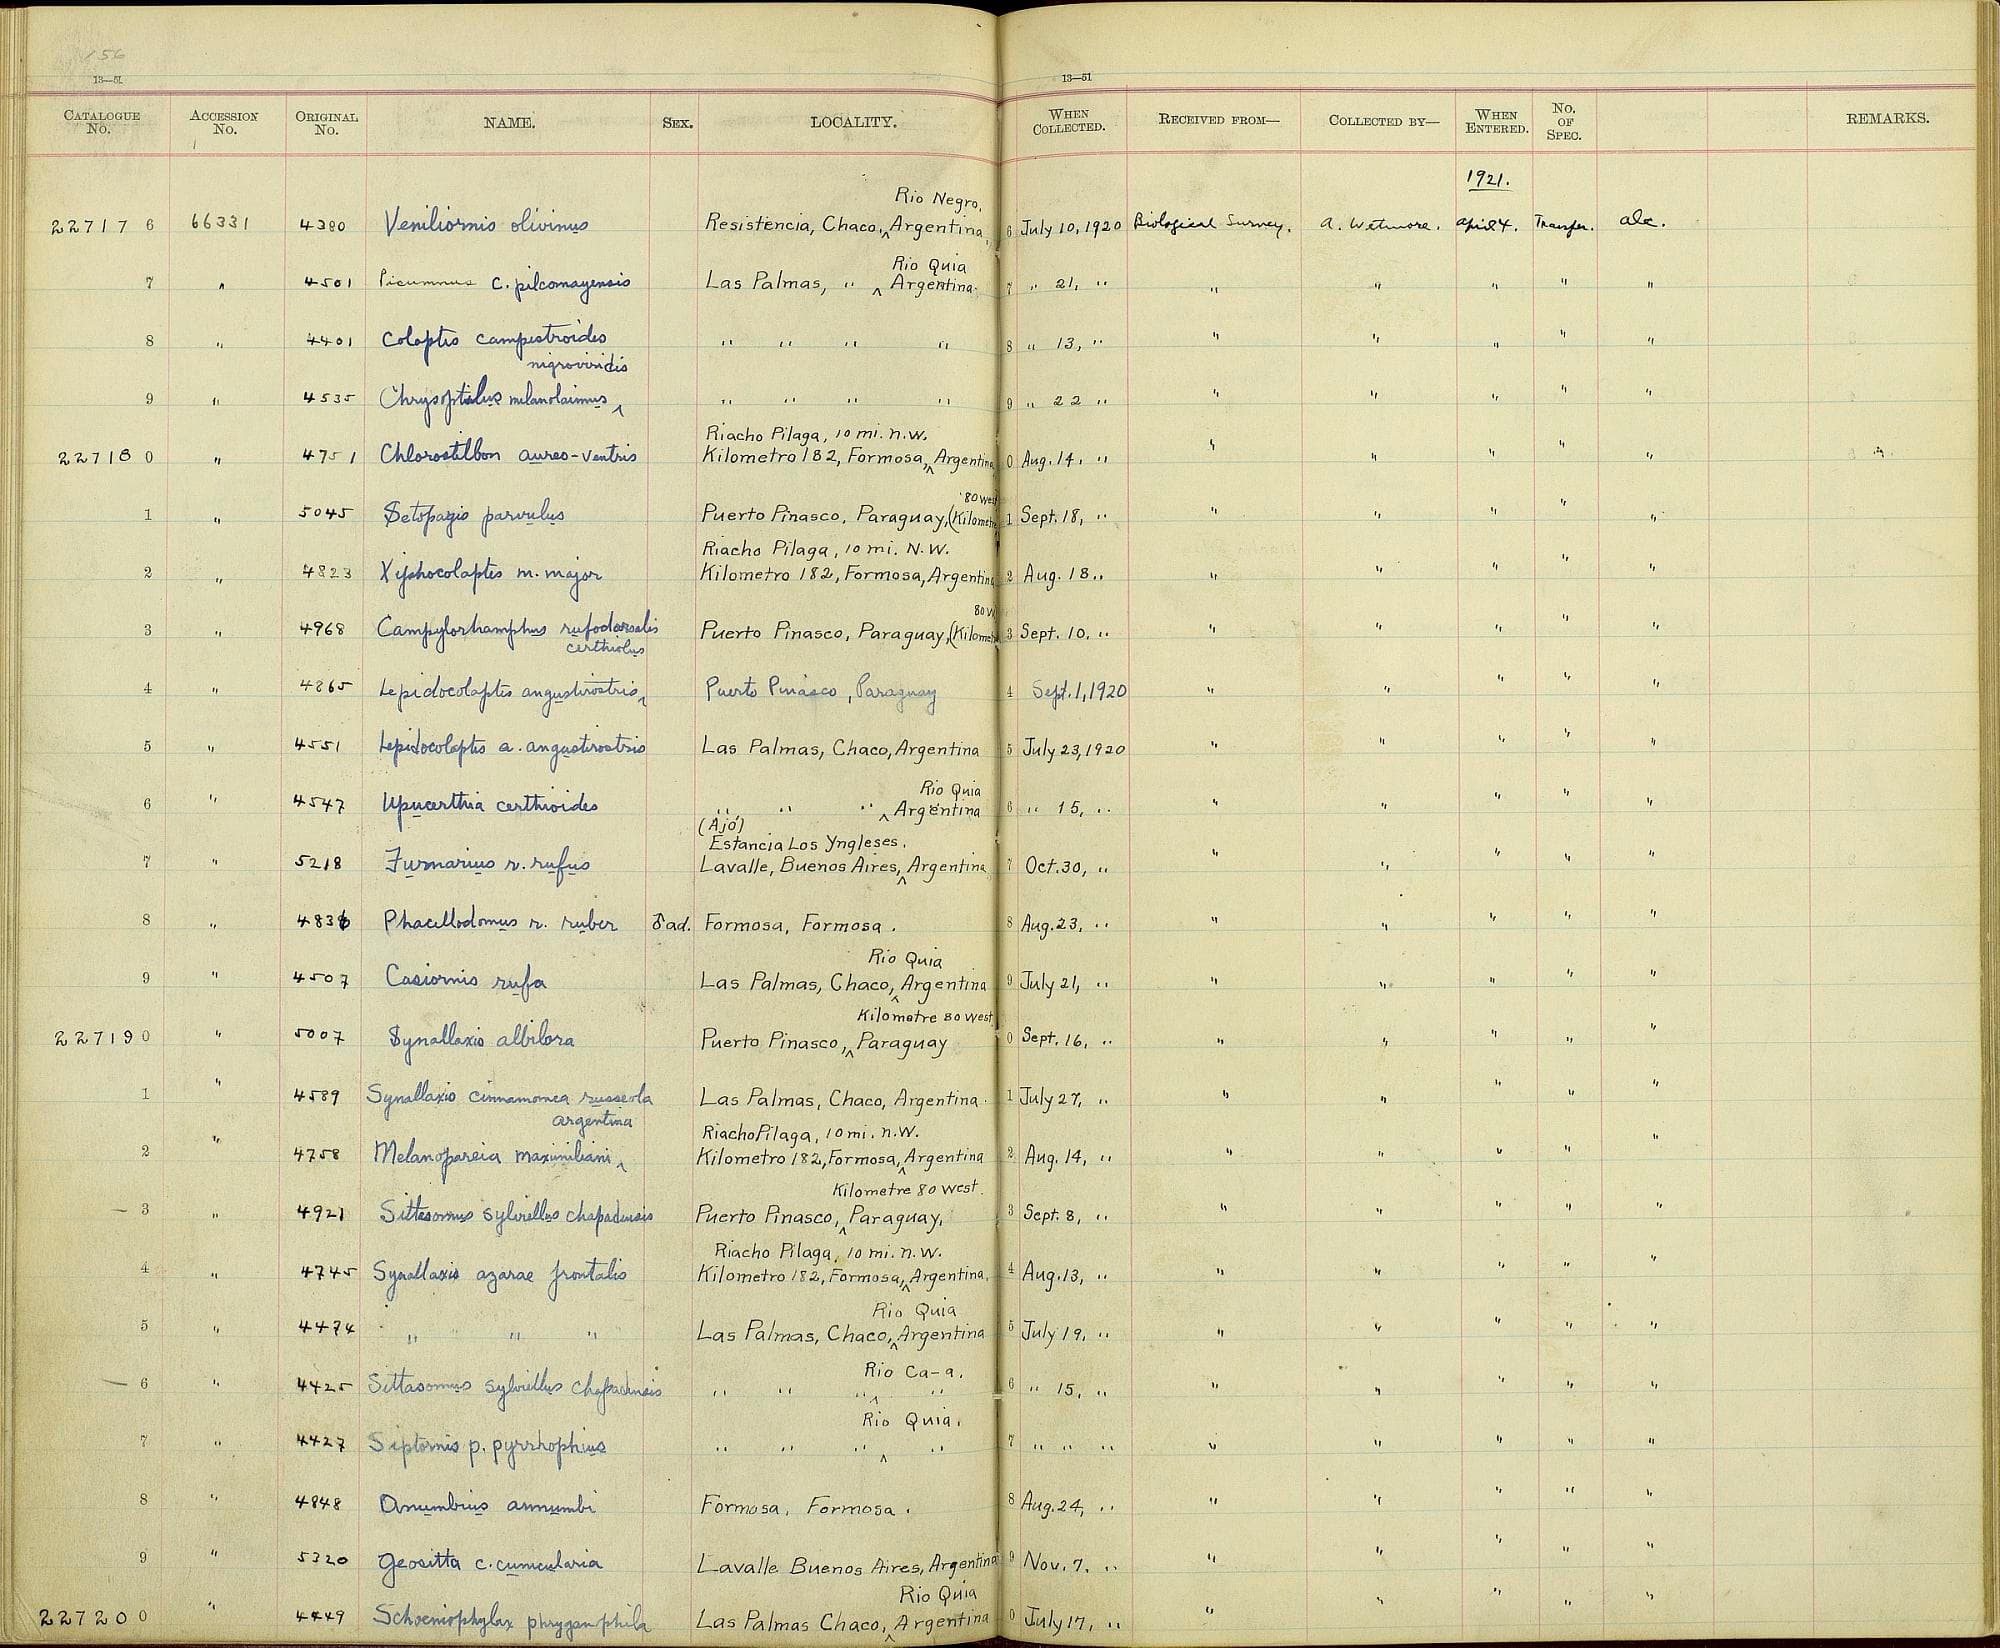 156
13—51
13—51
CATALOGUE No. ACCESSION No. ORIGINAL No. NAME. SEX. LOCALITY. WHEN COLLECTED. RECEIVED FROM— COLLECTED BY— WHEN ENTERED. No. OF SPEC. REMARKS.
1921.
Rio Negro,
227176 66331 4380 Veniliornis olivinus Resistencia, Chaco, ^ Argentina, 6 July 10, 1920 Biological Survey. A. Wetmore. April 4. Transfer. alc.
Rio Quia
7 " 4501 Picumnus c. pilcomayensis Las Palmas, " ^ Argentina. 7 " 21, " " " " " "
8 " 4401 Colaptes campestroides " " " " 8 " 13, " " " " " "
nigroviridis
9 " 4535 Chrysoptilus melanolaimus ^ " " " " 9 " 22 " " " " " "
Riacho Pilaga, 10 mi. N.W.
227180 " 4751 Chlorostilbon aureo-ventris Kilometro 182, Formosa, ^ Argentina 0 Aug. 14, " " " " " "
80 west
1 " 5045 Setopagis parvulus Puerto Pinasco, Paraguay, (Kilometre 1 Sept. 18, " " " " " "
Riacho Pilaga, 10 mi. N.W.
2 " 4823 Xiphocolaptes m. major Kilometro 182, Formosa, Argentina 2 Aug. 18 " " " " " "
80 W
3 " 4968 Campylorhamphus rufodorsalis Puerto Pinasco, Paraguay, (Kilometre 3 Sept. 10, " " " " " "
certhiolus
4 " 4865 Lepidocolaptes angustirostris ^ Puerto Pinasco, Paraguay 4 Sept. 1, 1920 " " " " "
5 " 4551 Lepidocolaptes a. angustirostris Las Palmas, Chaco, Argentina 5 July 23, 1920 " " " " "
Rio Quia
6 " 4547 Upucerthia certhioides " " " ^ Argentina 6 " 15, " " " " " "
(Ajó)
Estancia Los Yngleses.
7 " 5218 Furnarius r. rufus Lavalle, Buenos Aires, ^ Argentina 7 Oct. 30, " " " " " "
8 " 4836 Phacellodomus r. ruber ♂ad. Formosa, Formosa. 8 Aug. 23, " " " " " "
Rio Quia
9 " 4507 Casiornis rufa Las Palmas, Chaco, ^ Argentina 9 July 21, " " " " " "
Kilometre 80 west
227190 " 5007 Synallaxis albilora Puerto Pinasco, ^ Paraguay 0 Sept. 16, " " " " " "
1 " 4589 Synallaxis cinnamomea russeola Las Palmas, Chaco, Argentina. 1 July 27, " " " " " "
argentina
Riacho Pilaga, 10 mi. N.W.
2 " 4758 Melanopareia maximiliani ^ Kilometro 182, Formosa, ^ Argentina 2 Aug. 14, " " " " " "
Kilometre 80 west.
— 3 " 4921 Sittasomus sylviellus chapadensis Puerto Pinasco, ^ Paraguay, 3 Sept. 8, " " " " " "
Riacho Pilaga, 10 mi. N.W.
4 " 4745 Synallaxis azarae frontalis Kilometro 182, Formosa, ^ Argentina, 4 Aug. 13, " " " " " "
Rio Quia
5 " 4474 " " " Las Palmas, Chaco, ^ Argentina 5 July 19, " " " " " "
Rio Ca-a.
— 6 " 4425 Sittasomus sylviellus chapadensis " " " ^ " 6 " 15, " " " " " "
Rio Quia.
7 " 4427 Siptornis p. pyrrhophius " " " ^ " 7 " " " " " " " "
8 " 4848 Anumbius annumbi Formosa, Formosa. 8 Aug. 24, " " " " " "
9 " 5320 Geositta c. cunicularia Lavalle Buenos Aires, Argentina 9 Nov. 7, " " " " " "
Rio Quia
227200 " 4449 Schoeniophylax phryganophila Las Palmas Chaco, ^ Argentina 0 July 17, " " " " " "